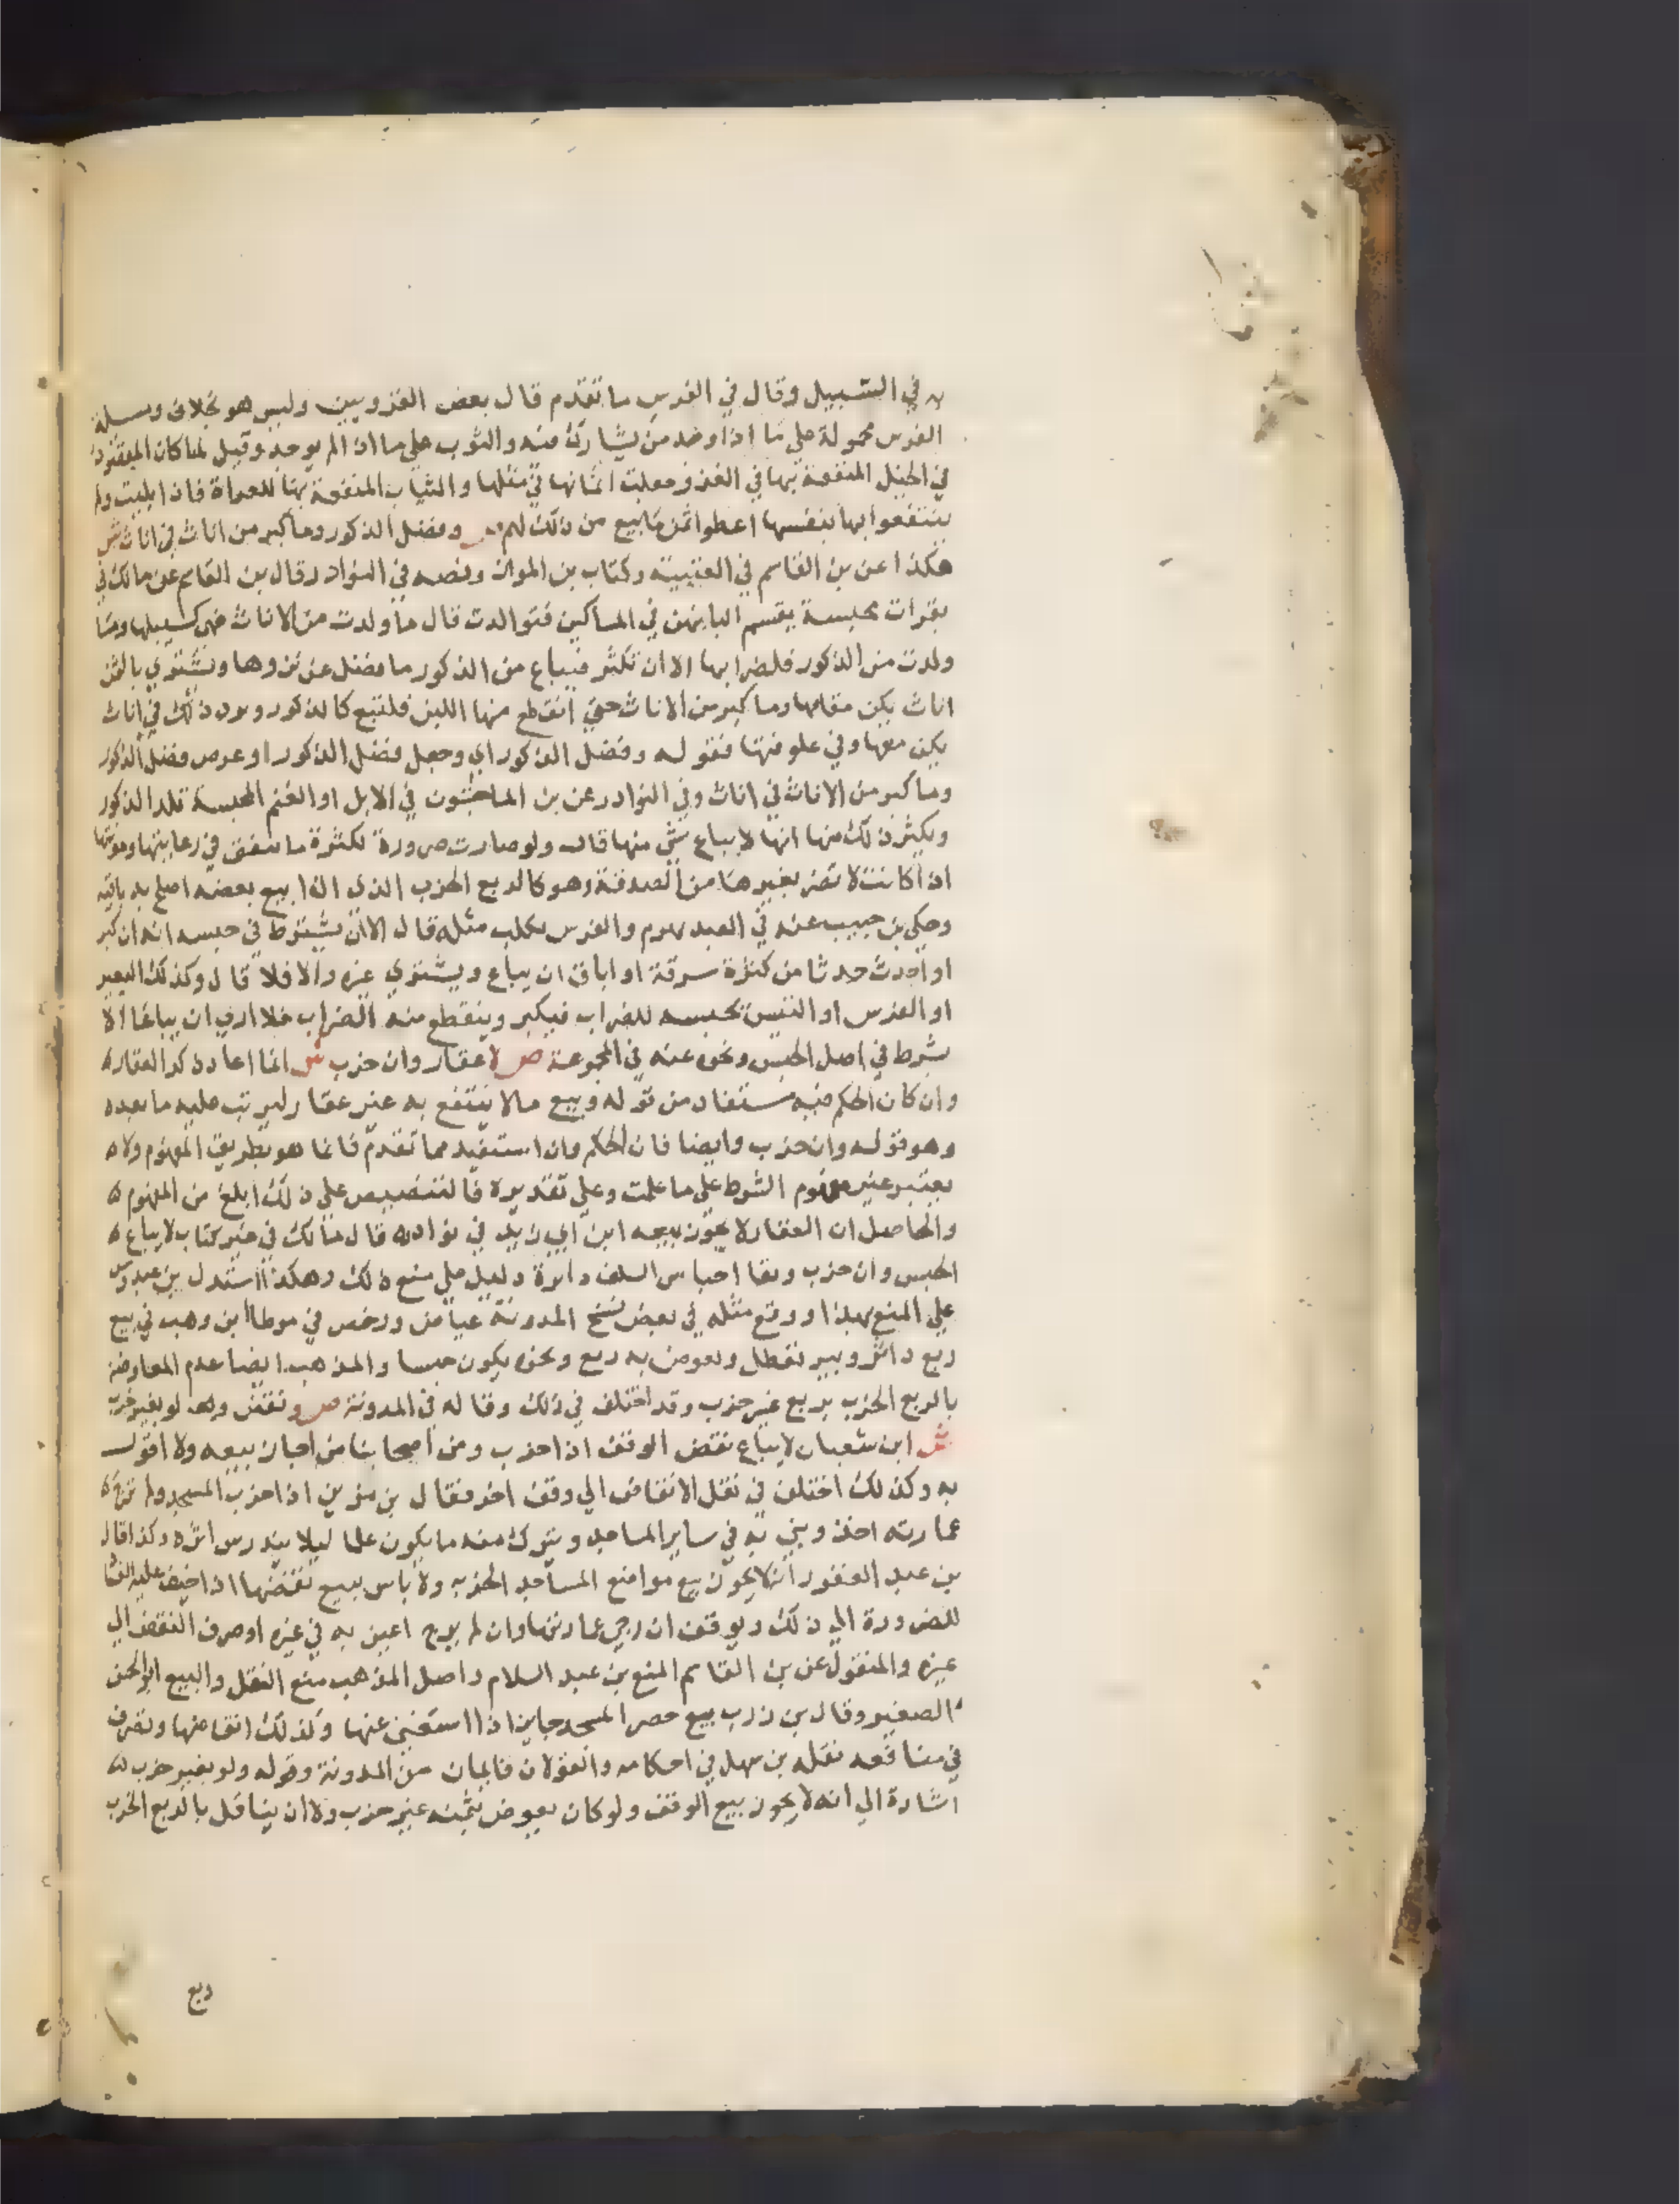 في السبيل وقال في الفرس ما تقدم قال بعض القرويين وليس هو بخلاف ومسلة
الفرس محمولة على ما اذا وجد من يشارك فيه والثوب على ما اذا لم يوجد وقيل لما كان المبتغون
في الخيل المنفعة بها في الغزو جعلت اثمانها في مثلها والثياب المنفعة بها للعراة فاذا بليت ولم
ينتفعوا بها بنفسها اعطوا ثمن ما بيع من ذلك لهم ص وفضل الذكور وما كبر من اناث في اناث ش
هكذا عن بن القاسم في العتبية وكتاب بن المواز ونصه في النوادر قال بن القاسم عن مالك في
بقرات محبسة يقسم البانهن في المساكين فتوالدت قال ما ولدت من الاناث فهي كسبيلها وما
ولدت من الذكور فلضرابها الا ان تكثر فيباع من الذكور ما فضل عن نزوها ونشتري بالثمن
اناث يكن مقامها وما كبر من الاناث حتى انقطع منها اللبن فلتبع كالذكور ويرد ذلك في اناث
يكن معها وفي علوفتها فقوله وفضل الذكور اي وجعل فضل الذكور او عوض فضل الذكور
وما كبر من الاناث في اناث وفي النوادر عن بن الماجشون في الابل او الغنم المحبسة تلد الذكور
ويكثر ذلك منها انها لا يباع شي منها قال ولو صارت ضرورة لكثرة ما ينفق في رعايتها ومونتها
اذا كانت لا تضر بغيرها من الصدقة وهو كالربع الخرب الذي اذا بيع بعضه اصلح به باقيه
وحكى بن حبيب عنه في العبد يهرم والفرس يكلب مثله قال الا ان يشترط في حبسه انه ان كبر
او احدث حدثا من كثرة سرقة او اباق ان يباع ويشتري غيره والا فلا قال وكذلك البعير
او الفرس او التيس تحبسه للضراب فيكبر وينقطع منه الضراب فلا ارى ان يباع الا
بشرط في اصل الحبس ونحوه عنه في المجموعة ص لا عقار وان خرب ش انما اعاد ذكر العقار
وان كان الحكم فيه مستفاد من قوله وبيع مالا ينتفع به غير عقار ليرتب عليه ما بعده
وهو قوله وان خرب وايضا فان الحكم وان استفيد مما تقدم فانما هو بطريق المفهوم ولا
يعتبر غير مفهوم الشرط على ما علمت وعلى تقديره فالتنصيص على ذلك ابلغ من المفهوم
والحاصل ان العقار لا يجوز بيعه ابن ابي زيد في نوادره قال مالك في غير كتاب لا يباع
الحبس وان خرب وبقا احباس السلف داثرة دليل على منع ذلك وهكذا استدل بن عبدوس
على المنع بهذا ووقع مثله في بعض نسخ المدونة عياض ورخص في موطا ابن وهب في بيع
ربع داثر وبير تعطل ويعوض به ربع ونحوه يكون حبسا والمذهب ايضا عدم المعاوضة
بالربع الخرب بربع غير خرب وقد اختلف في ذلك وقاله في المدونة ص ونقض وهـ لو بغير خرب
ش ابن شعبان لا يباع نقض الوقف اذا خرب ومن اصحابنا من اجاز بيعه ولا اقول
به وكذلك اختلف في نقل الانقاض الي وقف اخر فقال بن مزين اذا خرب المسجد ولم ترج
عمارته اخذ وبني به في ساير المساجد ويترك منه ما يكون علما ليلا يندرس اثره وكذا قال
بن عبد الغفور انه لا يجوز بيع مواضع المساجد الخربه ولا باس ببيع نقضها اذا خيف عليه الفساد
للضرورة الي ذلك ويوقف ان رجي عمارتها وان لم يرج اعين به في غيره او صرف النقض الي
غيره والمنقول عن بن القاسم المنع بن عبد السلام واصل المذهب منع النقل والبيع ابو الحسن
الصغير وقال بن زرب بيع حصر المسجد جايز اذا استغني عنها وكذلك انقاضها وتصرف
في منافعه نقله بن سهل في احكامه والقولان قايمان من المدونة وقوله ولو بغير خرب
اشارة الي انه لا يجوز بيع الوقف ولو كان يعوض بثمنه غير خرب ولا ان يناقل بالربع الخرب
ربع